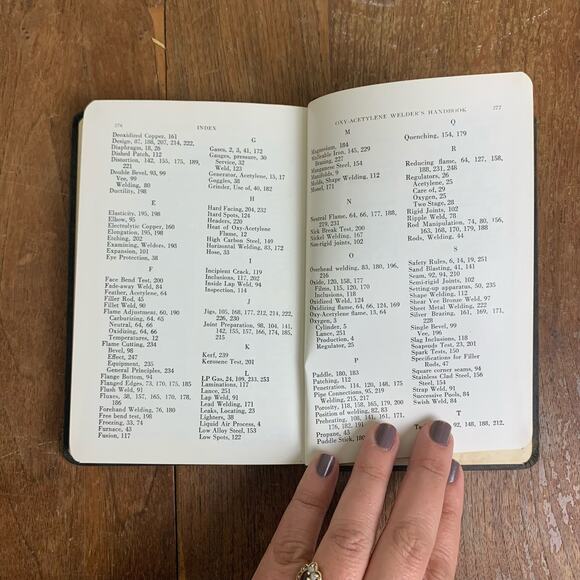 276
INDEX
Deoxidized Copper, 161
Design, 87, 188, 207, 214, 222
Diaphragms, 18, 26
Dished Patch, 112
Distortion, 142, 155, 175, 189,
221
Double Bevel, 93, 99
Vee, 99
Welding, 80
Ductility, 198
E
Elasticity, 195, 198
Elbow, 95
Electrolytic Copper, 160
Elongation, 195, 198
Etching, 202
Examining, Welders, 193
Expansion, 101
Eye Protection, 38
F
Face Bend Test, 200
Fade-away Weld, 84
Feather, Acetylene, 64
Filler Rod, 45
Fillet Weld, 90
Flame Adjustment, 60, 190
Carburizing, 64, 65
Neutral, 64, 66
Oxidizing, 64, 66
Temperatures, 12
Flame Cutting, 234
Bevel, 98
Effect, 247
Equipment, 235
General Principles, 234
Flange Bottom, 94
Flanged Edges, 73, 170, 175, 185
Flush Weld, 91
Fluxes, 38, 157, 165, 170, 178,
186
Forehand Welding, 76, 180
Free bend test, 198
Freezing, 33, 74
Furnace, 43
Fusion, 117
G
Gases, 2, 3, 41, 172
Gauges, pressure, 30
Service, 32
Weld, 123
Generator, Acetylene, 15, 17
Goggles, 38
Grinder, Use of, 40, 182
H
Hard Facing, 204, 232
Hard Spots, 124
Headers, 220
Heat of Oxy-Acetylene
Flame, 12
High Carbon Steel, 149
Horizontal Welding, 83, 172
Hose, 33
I
Incipient Crack, 119
Inclusions, 117, 202
Inside Lap Weld, 94
Inspection, 114
J
Jigs, 105, 168, 177, 212, 214, 222,
226, 230
Joint Preparation, 98, 104, 141,
142, 155, 157, 166, 174, 185,
215
K
Kerf, 239
Kerosene Test, 201
L
LP Gas, 24, 109, 233, 253
Laminations, 117
Lance, 251
Lap Weld, 91
Lead Welding, 171
Leaks, Locating, 23
Lighters, 38
Liquid Air Process, 4
Low Alloy Steel, 153
Low Spots, 122
OXY-ACETYLENE WELDER'S HANDBOOK
277
M
Magnesium, 184
Malleable Iron, 145, 229
Brazing, 227
Manganese Steel, 154
Manifolds, 9
Molds, Shape Welding, 112
Monel, 171
N
Neutral Flame, 64, 66, 177, 188,
219, 231
Nick Break Test, 200
Nickel Welding, 167
Non-rigid joints, 102
O
Overhead welding, 83, 180, 196,
216
Oxide, 120, 158, 177
Films, 115, 120, 170
Inclusions, 118
Oxidized Weld, 124
Oxidizing flame, 64, 66, 124, 169
Oxy-Acetylene flame, 13, 64
Oxygen, 3
Cylinder, 5
Lance, 251
Production, 4
Regulator, 25
P
Paddle, 180, 183
Patching, 112
Penetration, 114, 120, 148, 175
Pipe Connections, 95, 219
Welding, 215, 217
Porosity, 118, 158, 165, 179, 200
Position of welding, 82, 83
Preheating, 108, 141, 161, 171,
176, 182, 191
Propane, 43
Paddle Stick, 180
Q
Quenching, 154, 179
R
Reducing flame, 64, 127, 158,
188, 231, 248
Regulators, 26
Acetylene, 25
Care of, 29
Oxygen, 25
Two Stage, 28
Rigid Joints, 102
Ripple Weld, 78
Rod Manipulation, 74, 80, 156,
163, 168, 170, 179, 188
Rods, Welding, 44
S
Safety Rules, 6, 14, 19, 251
Sand Blasting, 41, 141
Seam, 92, 94, 210
Semi-rigid Joints, 102
Setting-up apparatus, 50, 235
Shape Welding, 112
Sheer Vee Bronze Weld, 97
Sheet Metal Welding, 222
Silver Brazing, 161, 169, 171,
228
Single Bevel, 99
Vee, 196
Slag Inclusions, 118
Soapsuds Test, 23, 201
Spark Tests, 150
Specifications for Filler
Rods, 47
Square corner seams, 94
Stainless Clad Steel, 156
Steel, 154
Strap Weld, 91
Successive Pools, 84
Swish Weld, 84
T
92, 148, 188, 212,